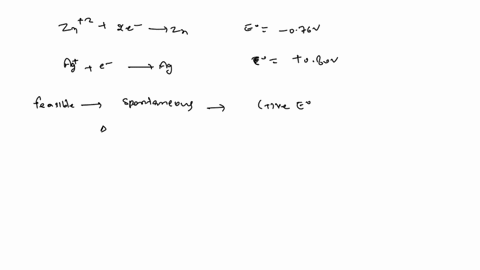 Zn⁺² + 2e⁻ → Zn E° = -0.76V
Ag⁺ + e⁻ → Ag E° = +0.80V
feasible → spontaneous → (+)ve E°